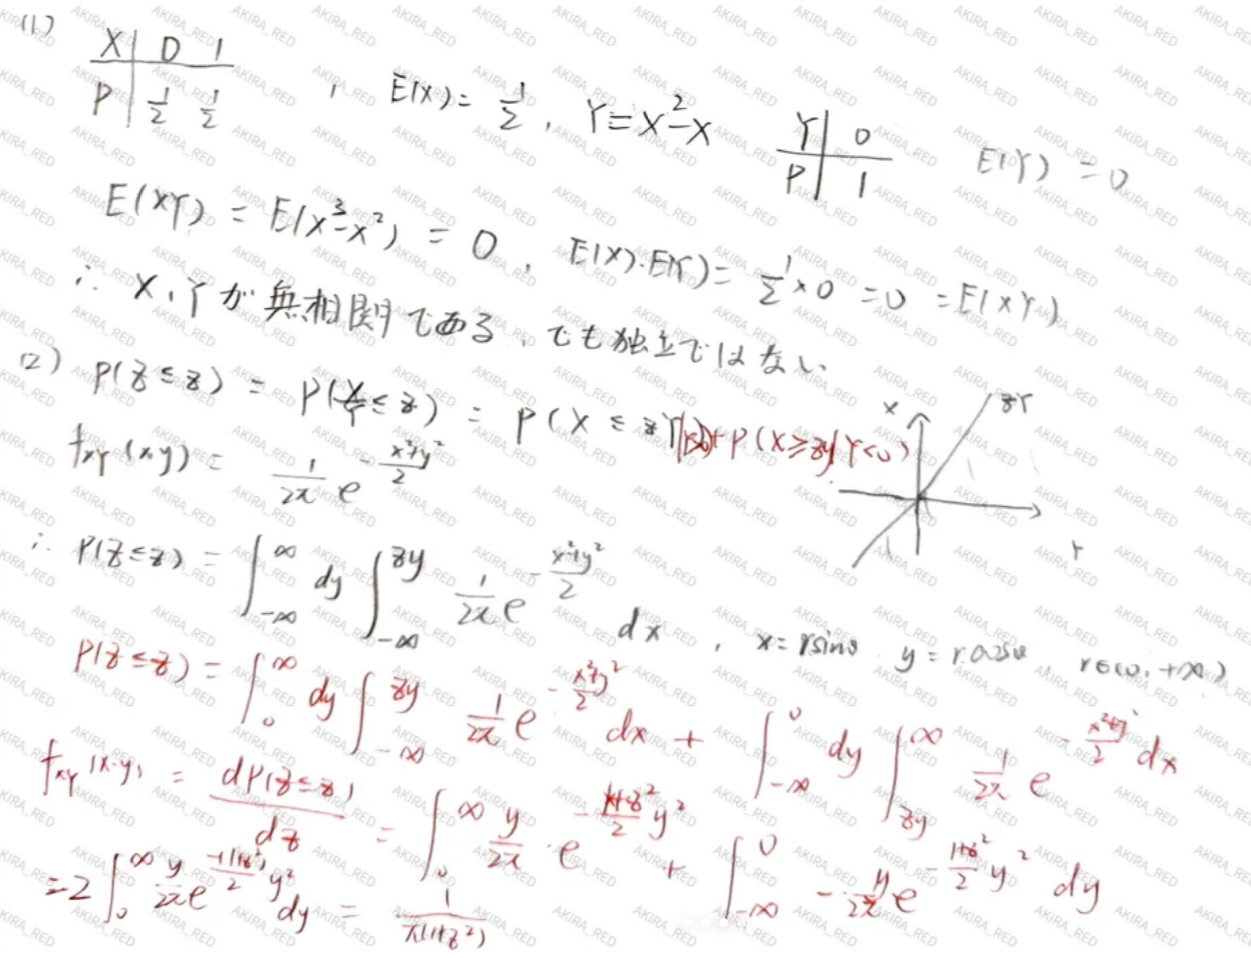 (1)
X | 0 1
P | 1/2 1/2 , E(X) = 1/2 , Y = X² - X
Y | 0
P | 1
E(Y) = 0
E(XY) = E(X³ - X²) = 0 , E(X)·E(Y) = 1/2 × 0 = 0 = E(XY)
∴ X, Yが無相関である、でも独立ではない、
(2) P(Z ≤ z) = P(X/Y ≤ z) = P(X ≤ zY|Y>0) + P(X ≥ zy|Y<0)
X
zY
Y
f_{XY}(x,y) = 1/2π e^{-(x²+y²)/2}
∴ P(Z ≤ z) = ∫_{-∞}^{∞} dy ∫_{-∞}^{zy} 1/2π e^{-(x²+y²)/2} dx , x = r sinθ y = r cosθ r∈(0, +∞)
P(Z ≤ z) = ∫_{0}^{∞} dy ∫_{-∞}^{zy} 1/2π e^{-(x²+y²)/2} dx + ∫_{-∞}^{0} dy ∫_{zy}^{∞} 1/2π e^{-(x²+y²)/2} dx
f_{XY}(x,y) = dP(Z ≤ z)/dz = ∫_{0}^{∞} y/2π · e^{-(1+z²)/2 y²} + ∫_{-∞}^{0} -y/2π e^{-(1+z²)/2 y²} dy
= 2∫_{0}^{∞} y/2π e^{-(1+z²)/2 y²} dy = 1/π(1+z²)
AKIRA_RED